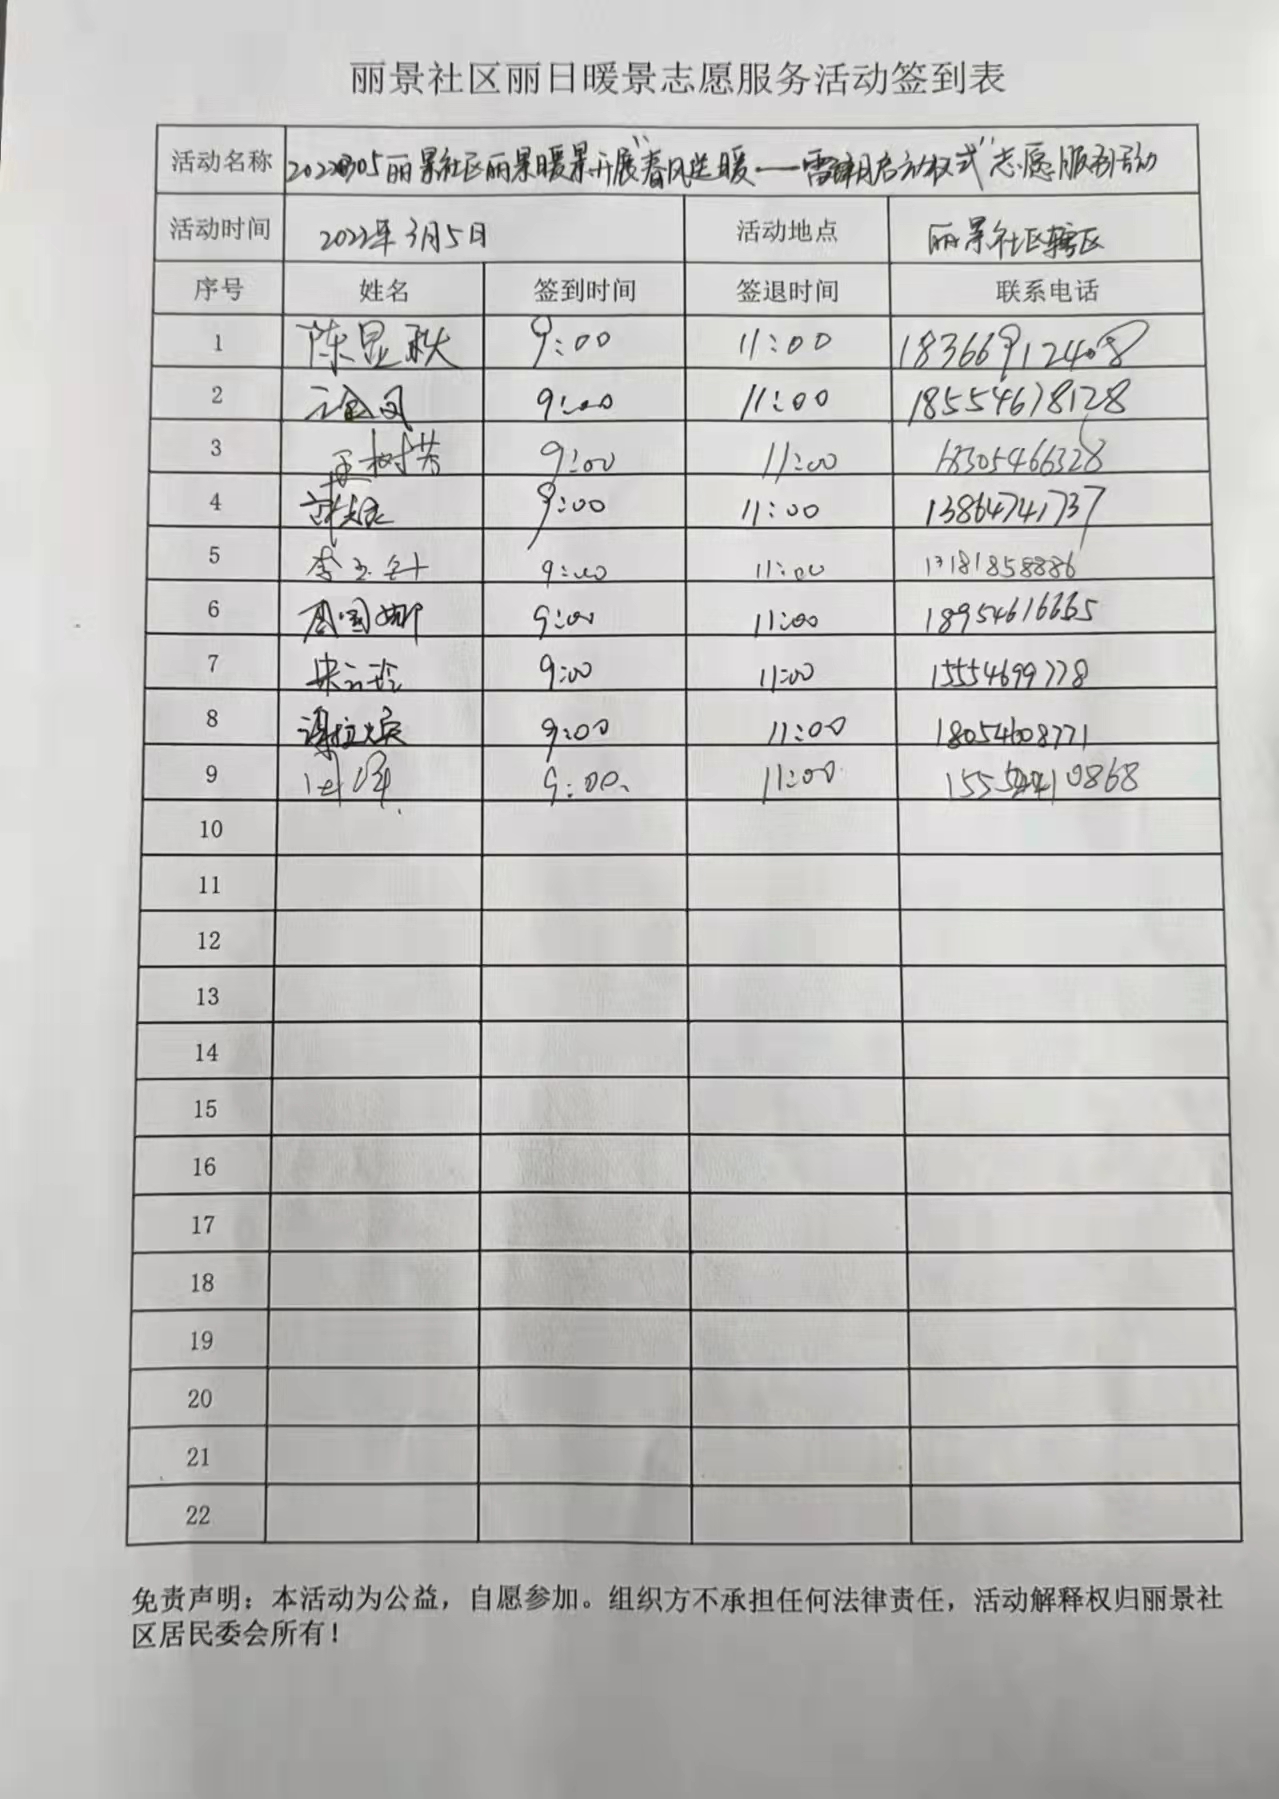 丽景社区丽日暖景志愿服务活动签到表
活动名称 20220305丽景社区丽景暖景开展"春风送暖——雷锋月启动仪式"志愿服务活动
活动时间 2022年3月5日 活动地点 丽景社区辖区
序号 姓名 签到时间 签退时间 联系电话
1 陈显秋 9:00 11:00 18366912408
2 9:00 11:00 18554678128
3 王树芳 9:00 11:00 18305466328
4 9:00 11:00 13864741737
5 李玉针 9:00 11:00 13181858886
6 周国娜 9:00 11:00 18954616665
7 宋云玲 9:00 11:00 15554699778
8 9:00 11:00 18054608771
9 9:00 11:00
10
11
12
13
14
15
16
17
18
19
20
21
22
免责声明：本活动为公益，自愿参加。组织方不承担任何法律责任，活动解释权归丽景社
区居民委会所有！